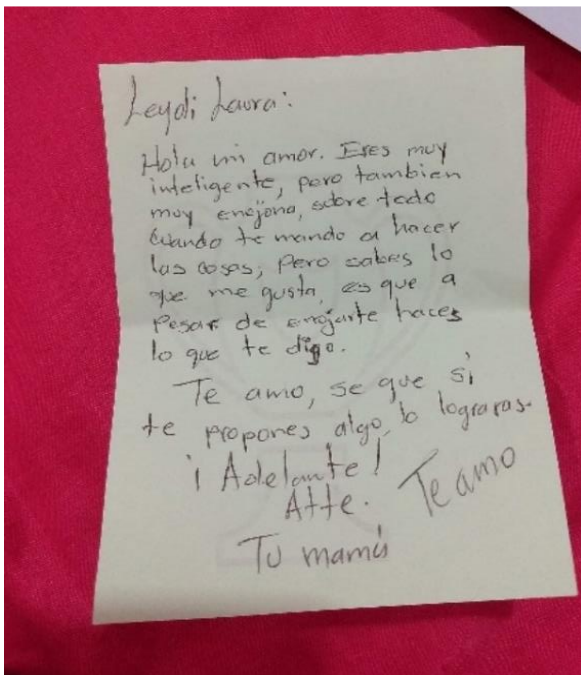 Leydi Laura:
Hola mi amor. Eres muy
inteligente, pero tambien
muy enojona, sobre todo
cuando te mando a hacer
las cosas; Pero sabes lo
que me gusta, es que a
Pesar de enojarte haces
lo que te digo.
Te amo, se que si
te propones algo, lo lograras.
¡Adelante!
Atte. Te amo
Tu mamá